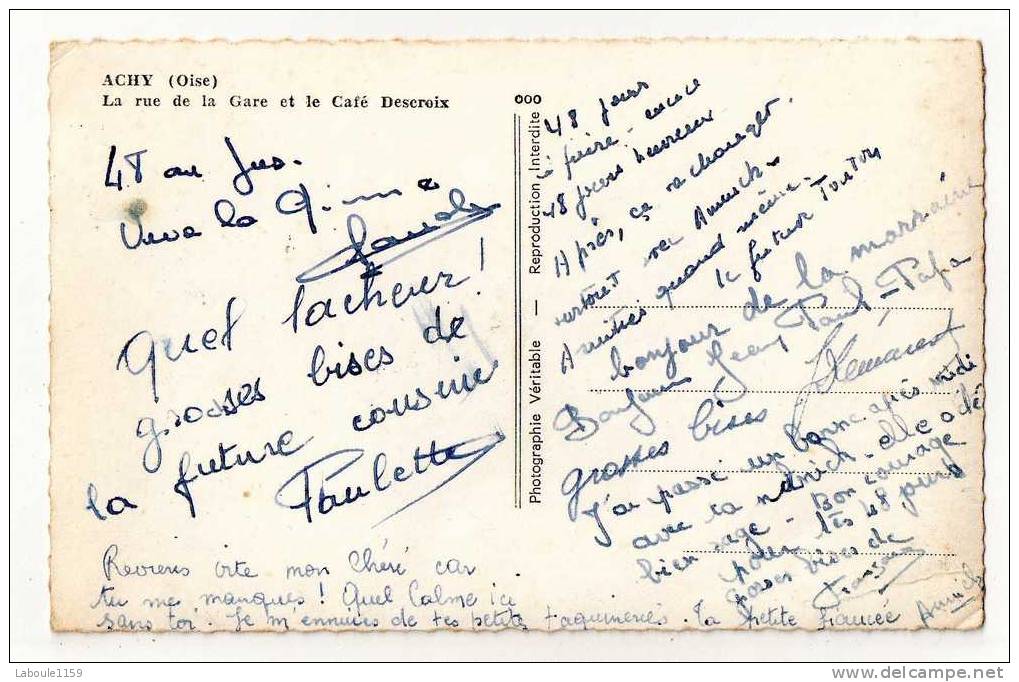 ACHY (Oise)
La rue de la Gare et le Café Descroix
48 au Jus.
Vive la
Quel lacheur!
grosses bises de
la future cousine
Paulette
Reviens vite mon Chéri car
tu me manques! Quel Calme ici
sans toi. Je m'ennuies de tes petites taquineries. Ta petite fiancée
Annick
Photographie Véritable — Reproduction Interdite
ooo
48 jours
à faire - encore
48 jours heureux
Après, ça va changer.
surtout avec Annick -
Amitiés quand même -
le futur Tonton
bonjour de la marraine
Bonjour Jean Paul - Papa
grosses bises
J'ai passé un bonne après midi
avec ta nénich - elle a été
bien sage - Bon courage
pour les 48 jours
grosses bises de
Delcampe.net
Laboule1159